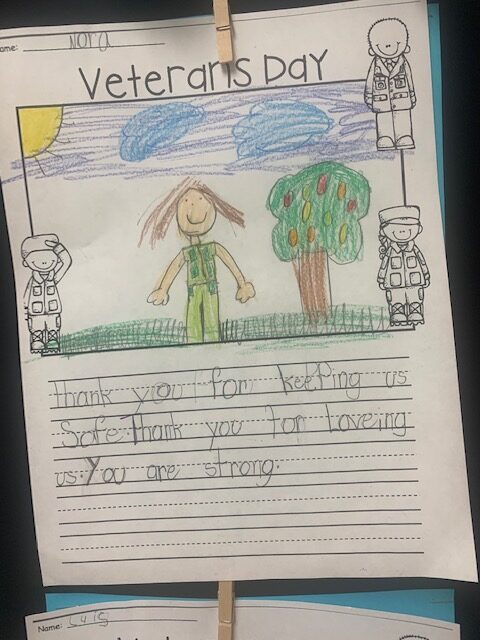 Name: Nora
Veterans Day
thank you for keeping us
Safe. Thank you for Loveing
us. You are strong.
Name: Luis